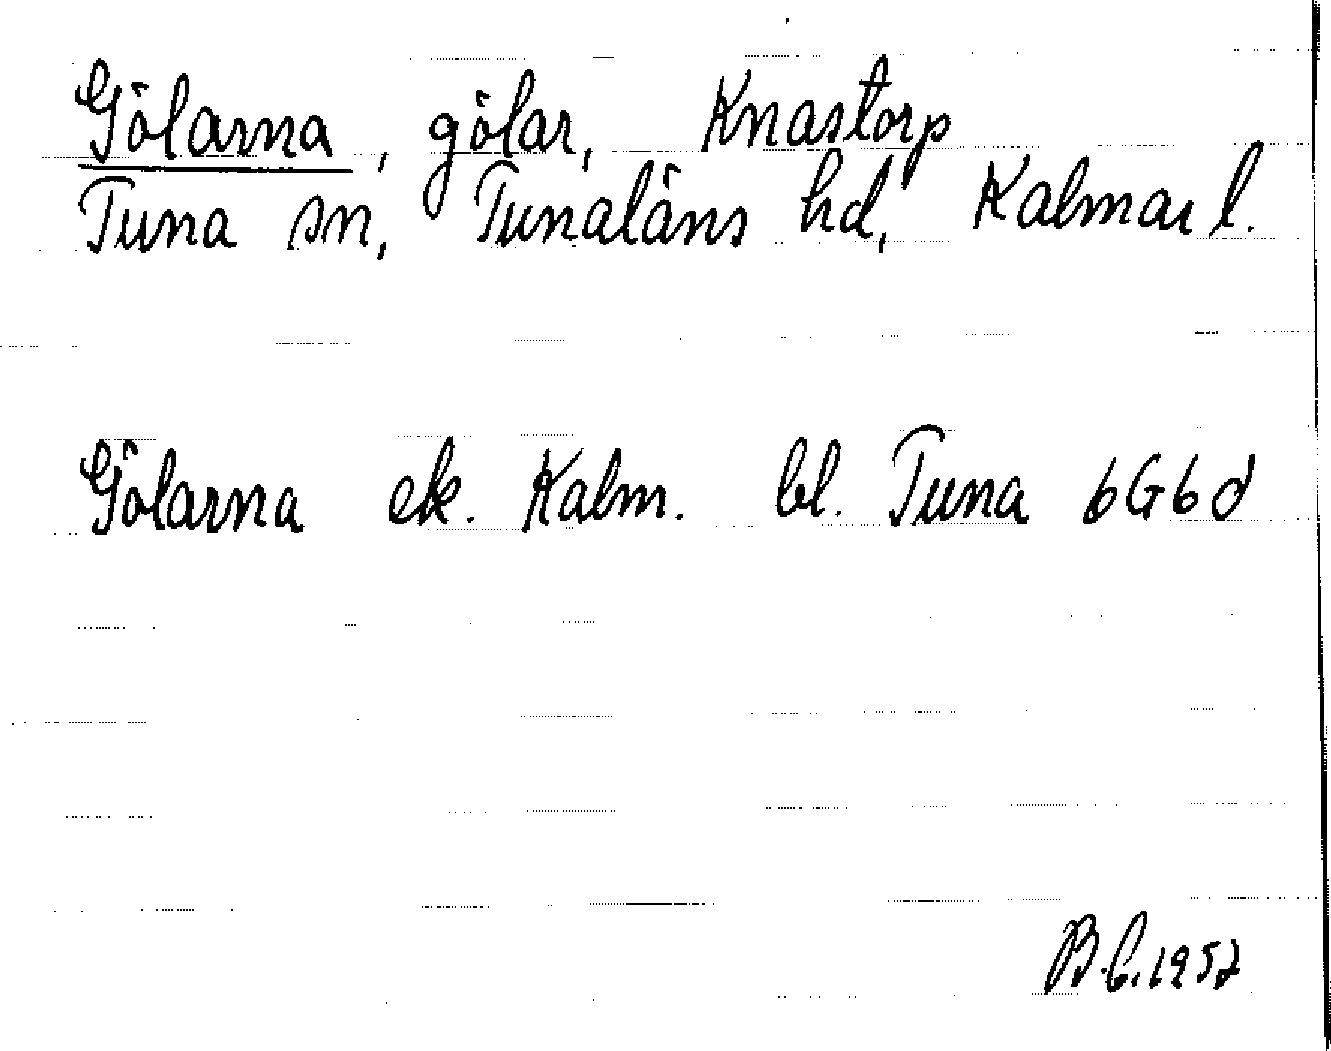 Gölarna, gölar, Knastorp
Tuna sn, Tunaläns hd, Kalmar l.
Gölarna ek. Kalm. bl. Tuna 6G6d
B.L.1957